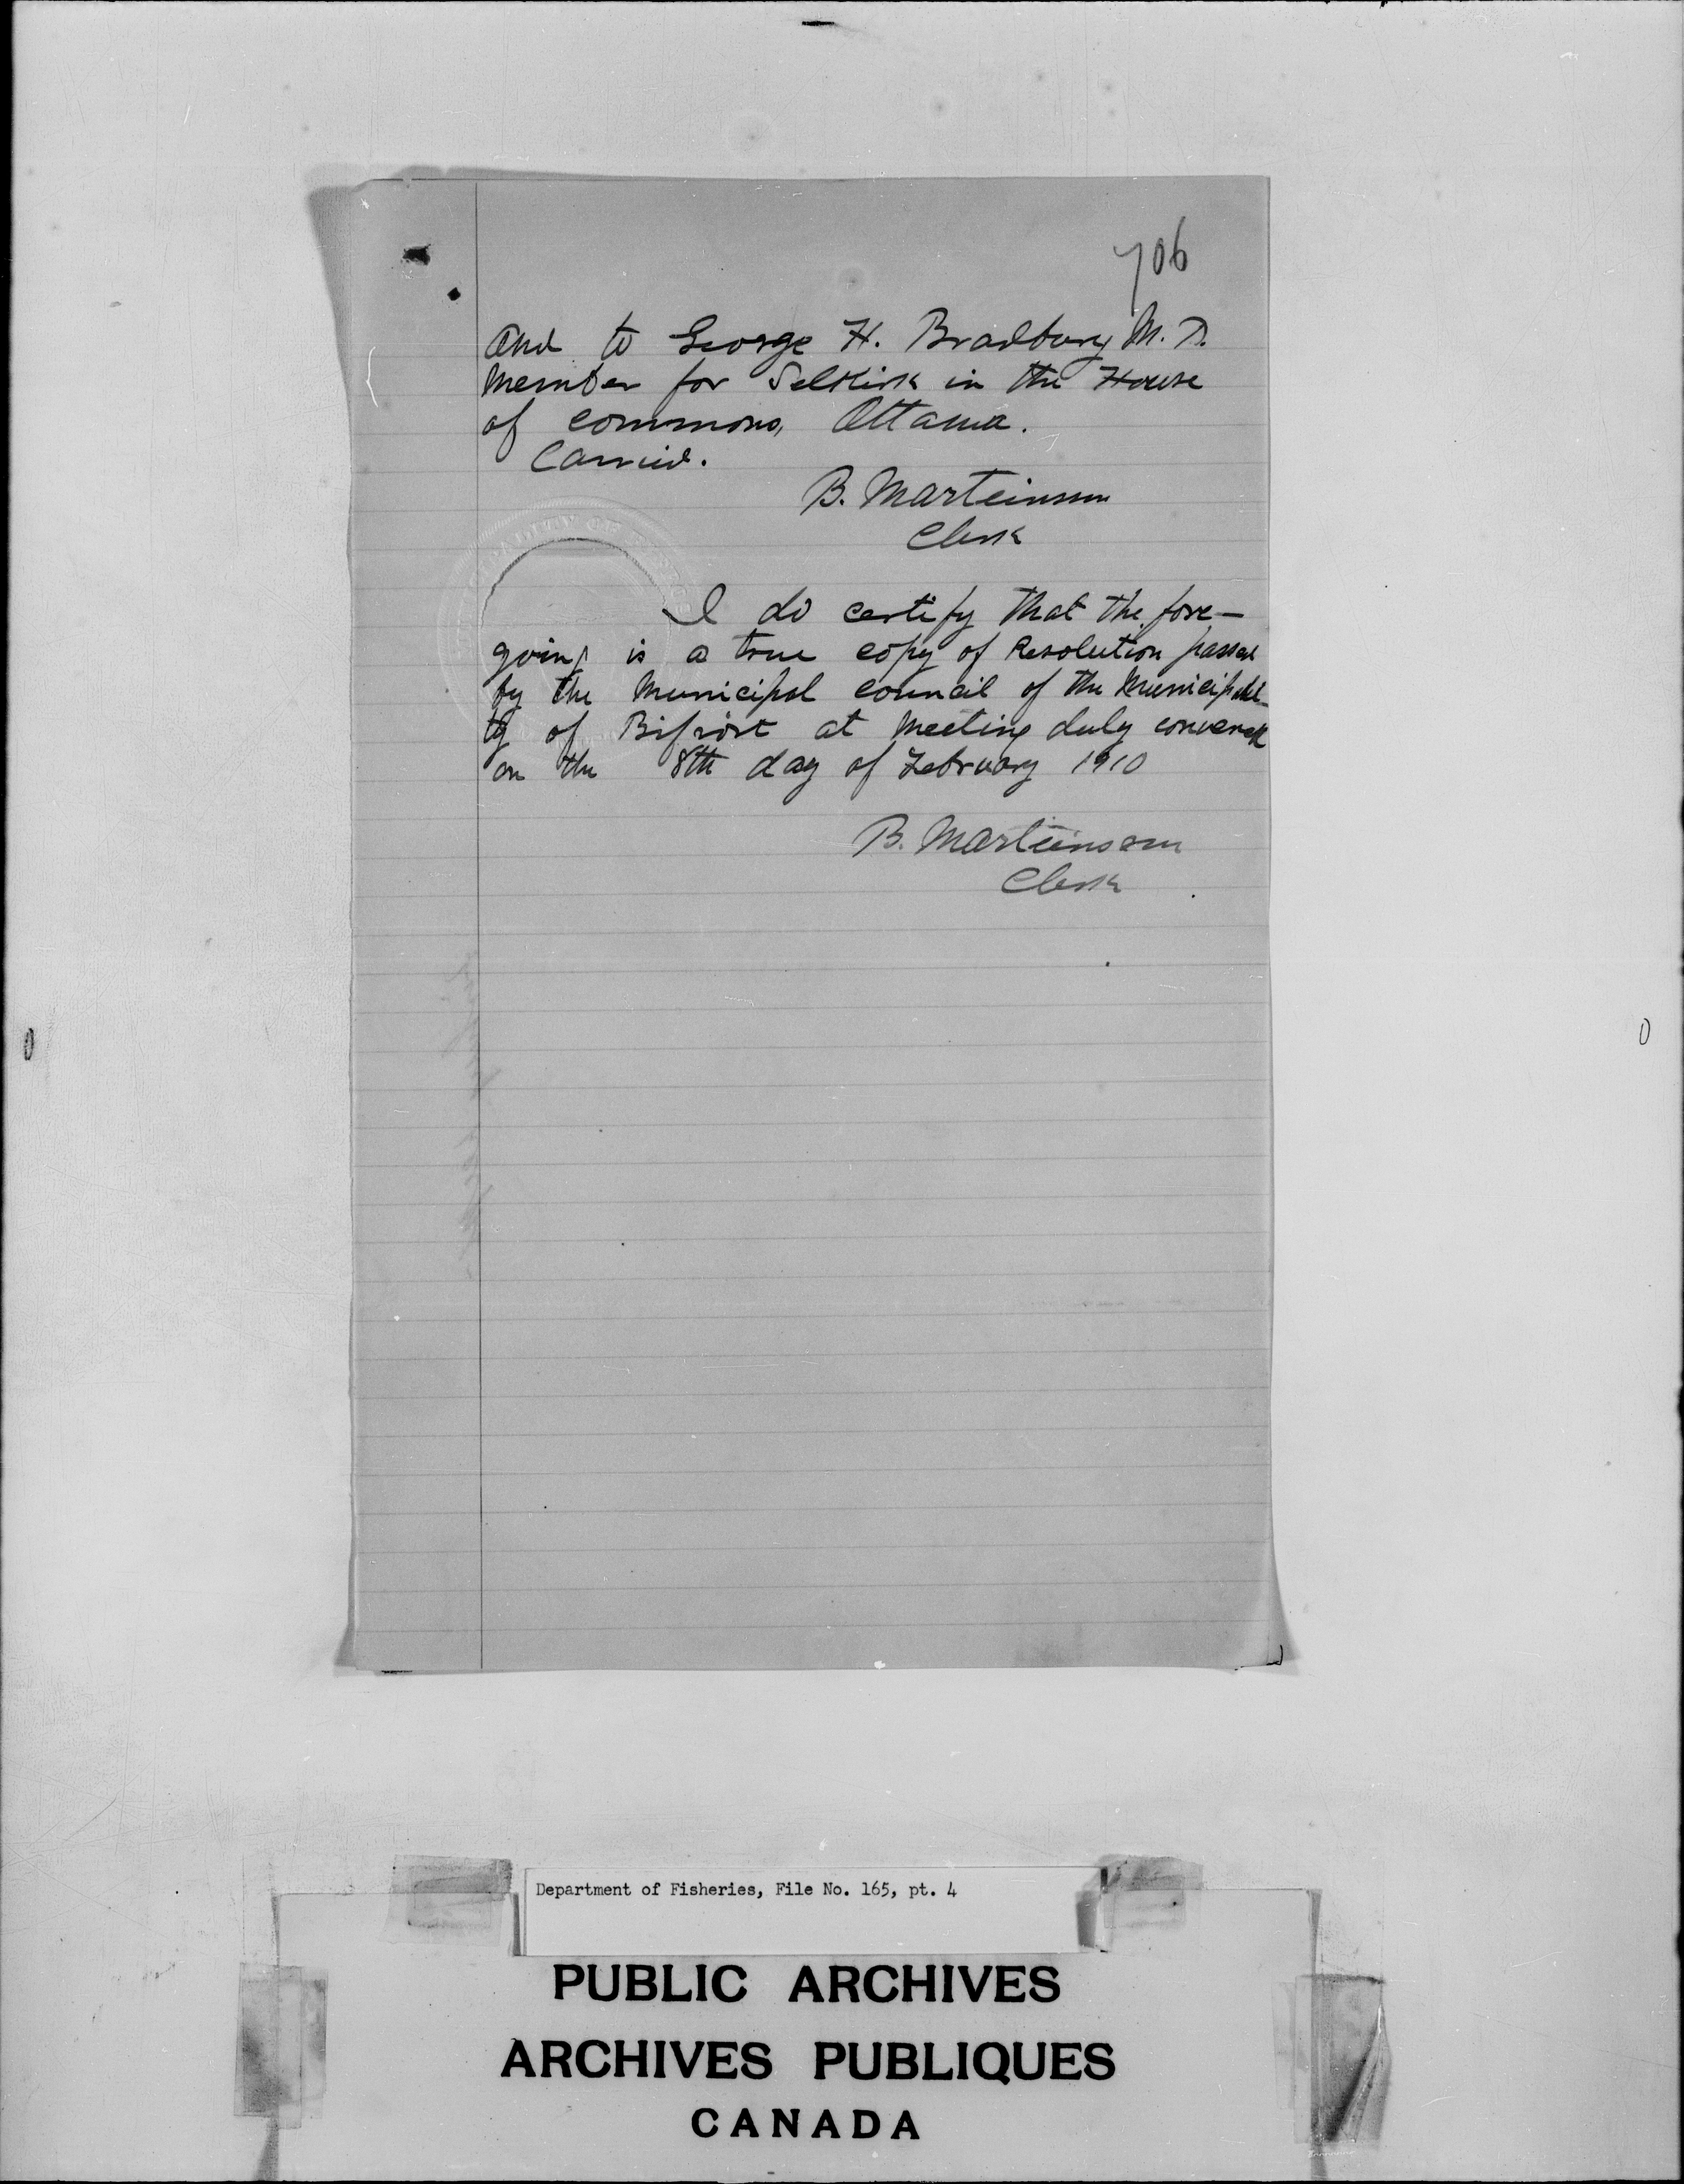 706
And to George H. Bradbury M.P.
Member for Selkirk in the House
of commons, Ottawa.
Carried.
B. Marteinsson
Clerk
I do certify that the fore-
going is a true copy of Resolution passed
by the Municipal council of the Municipali-
ty of Bifröst at meeting duly convened
on the 8th day of February 1910
B. Marteinsson
Clerk
Department of Fisheries, File No. 165, pt. 4
PUBLIC ARCHIVES
ARCHIVES PUBLIQUES
CANADA